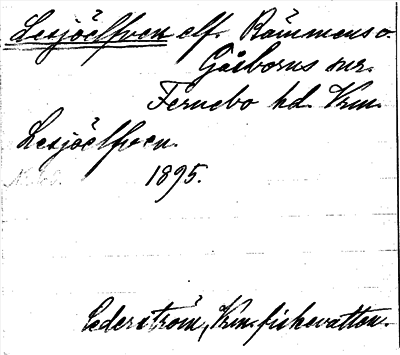 Lesjöelfven elf. Rämmens o.
Gåsborns snr.
Fernebo hd. Vrm.
Lesjöelfven.
1895.
Cederström, Vrm. fiskevatten.